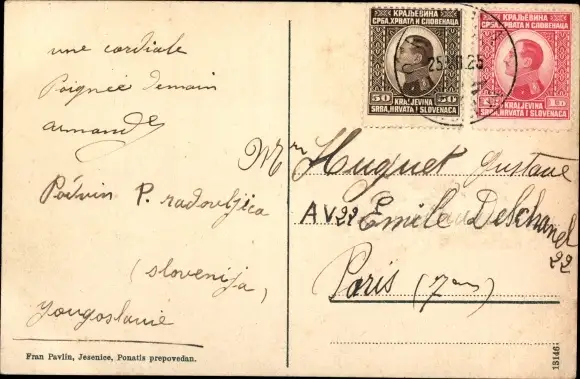 une cordiale
Poignée demain
armande
Podvin P. radovljica
(slovenija)
Yougoslavie
Fran Pavlin, Jesenice, Ponatis prepovedan.
КРАЉЕВИНА
СРБА, ХРВАТА И СЛОВЕНАЦА
50 KRALJEVINA 50
SRBA, HRVATA I SLOVENACA
КРАЉЕВИНА
СРБА, ХРВАТА И СЛОВЕНАЦА
KRALJEVINA 1D
SRBA, HRVATA I SLOVENACA
Mr Huguet Gustave
AV 22 Emile Deschanel
22
Paris (7)
13146